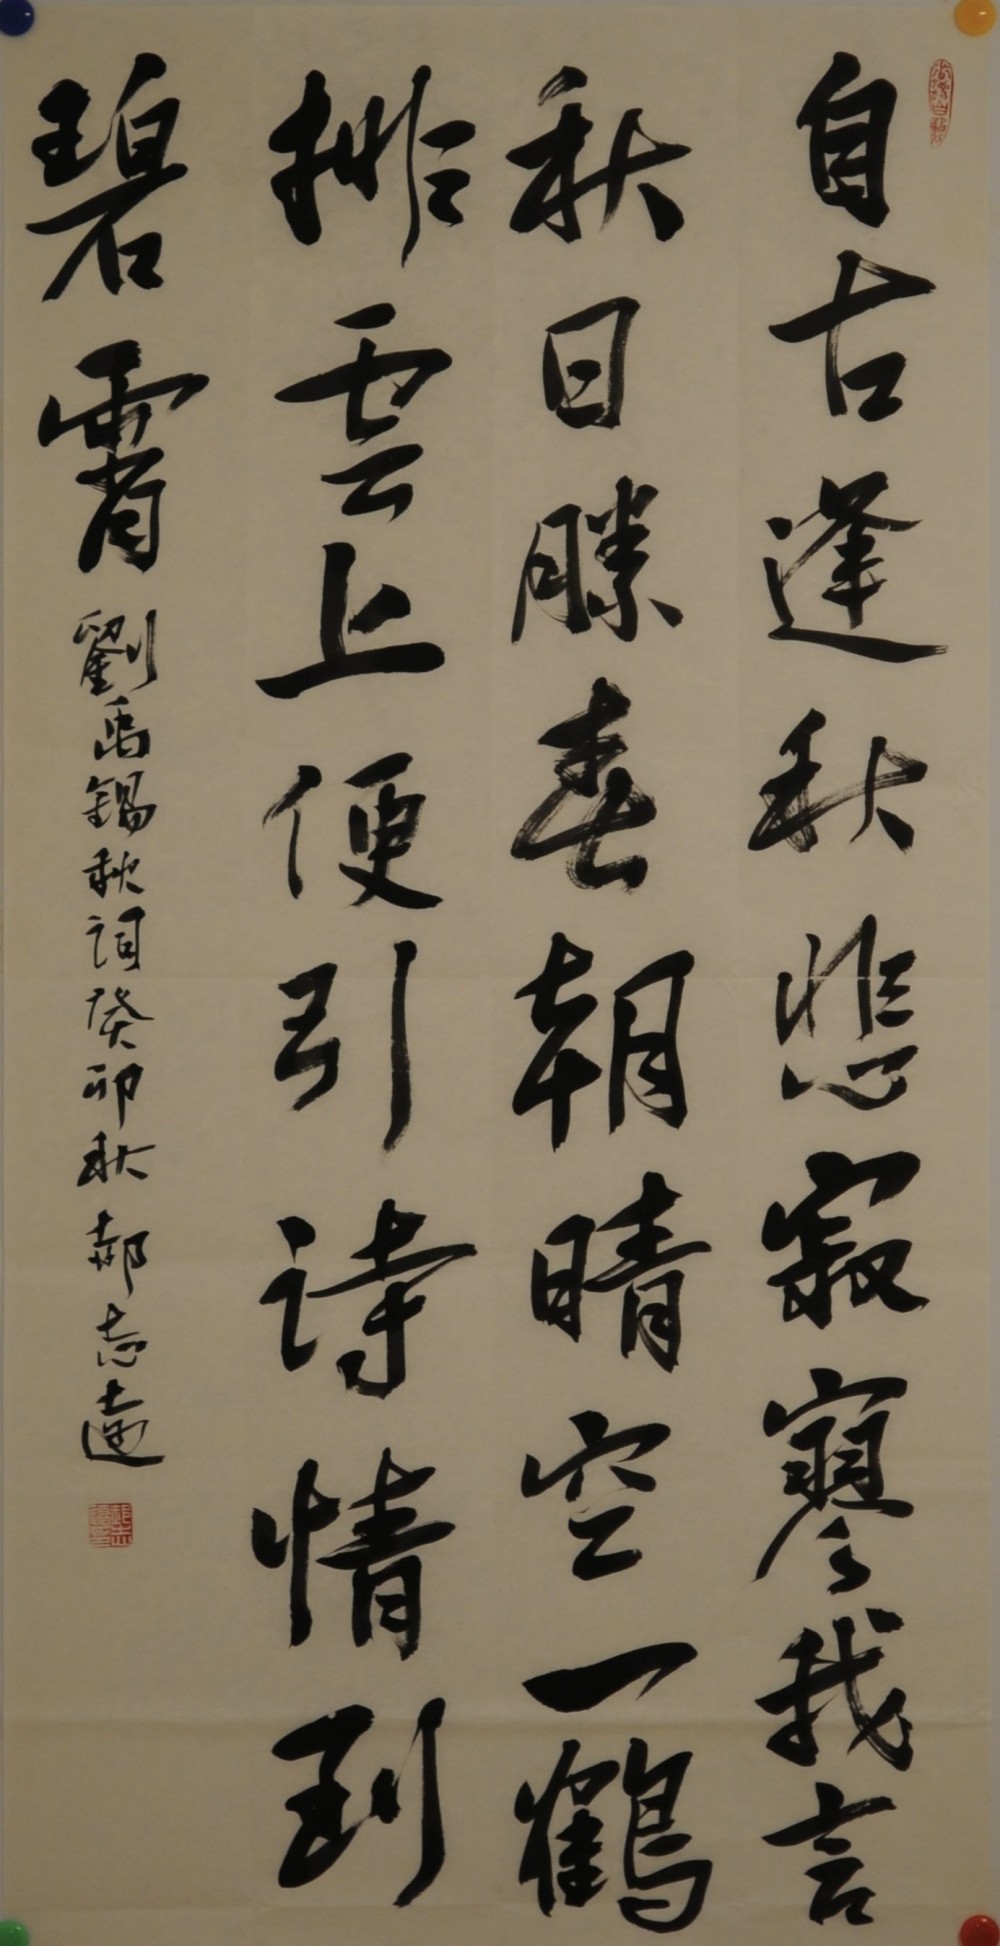 自古逢秋悲寂寥我言
秋日勝春朝晴空一鶴
排雲上便引詩情到
碧霄
劉禹錫秋詞癸卯秋郝志遠